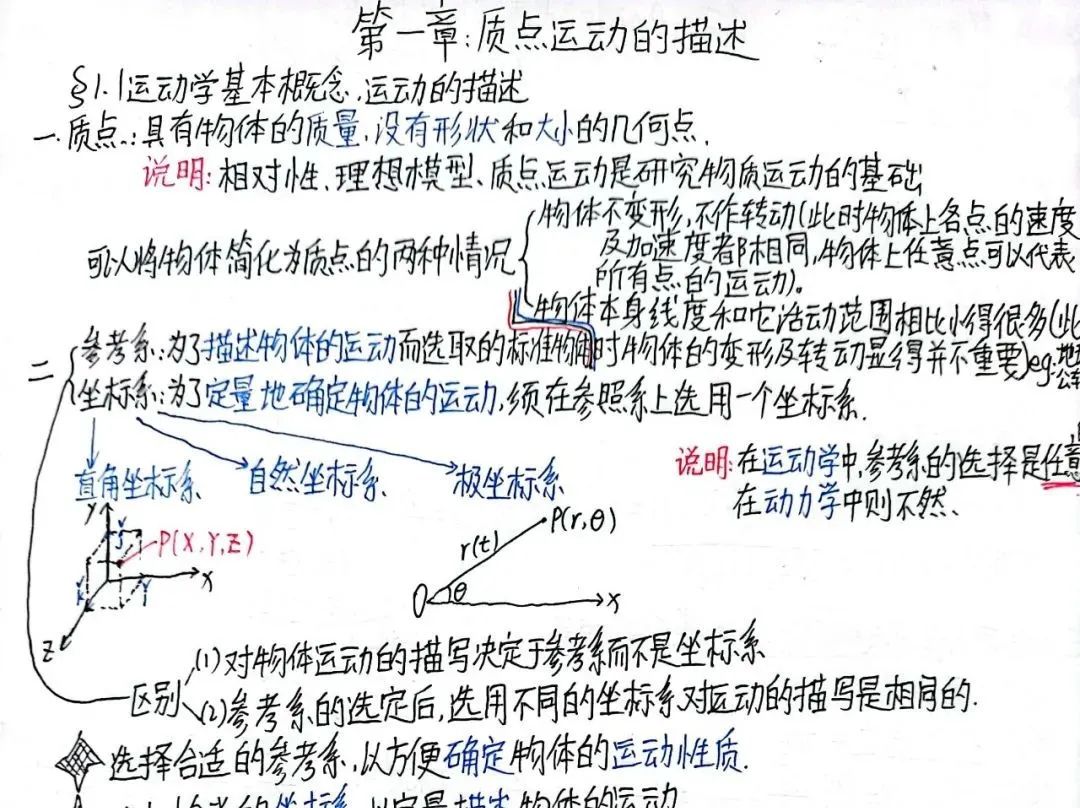 第一章:质点运动的描述
§1.1运动学基本概念.运动的描述
一.质点:具有物体的质量,没有形状和大小的几何点.
说明:相对性、理想模型、质点运动是研究物质运动的基础
可以将物体简化为质点的两种情况
物体不变形,不作转动(此时物体上各点的速度
及加速度都相同,物体上任意点可以代表
所有点的运动)。
物体本身线度和它活动范围相比小得很多(此
时物体的变形及转动显得并不重要)eg:
二
参考系:为了描述物体的运动而选取的标准物
坐标系:为了定量地确定物体的运动,须在参照系上选用一个坐标系.
直角坐标系 自然坐标系 极坐标系
说明:在运动学中,参考系的选择是任意
在动力学中则不然、
y P(X,Y,Z) x z
P(r,θ) r(t) O θ x
区别
(1)对物体运动的描写决定于参考系而不是坐标系
(2)参考系的选定后,选用不同的坐标系对运动的描写是相同的.
选择合适的参考系,以方便确定物体的运动性质.
坐标系,以定量描述物体的运动